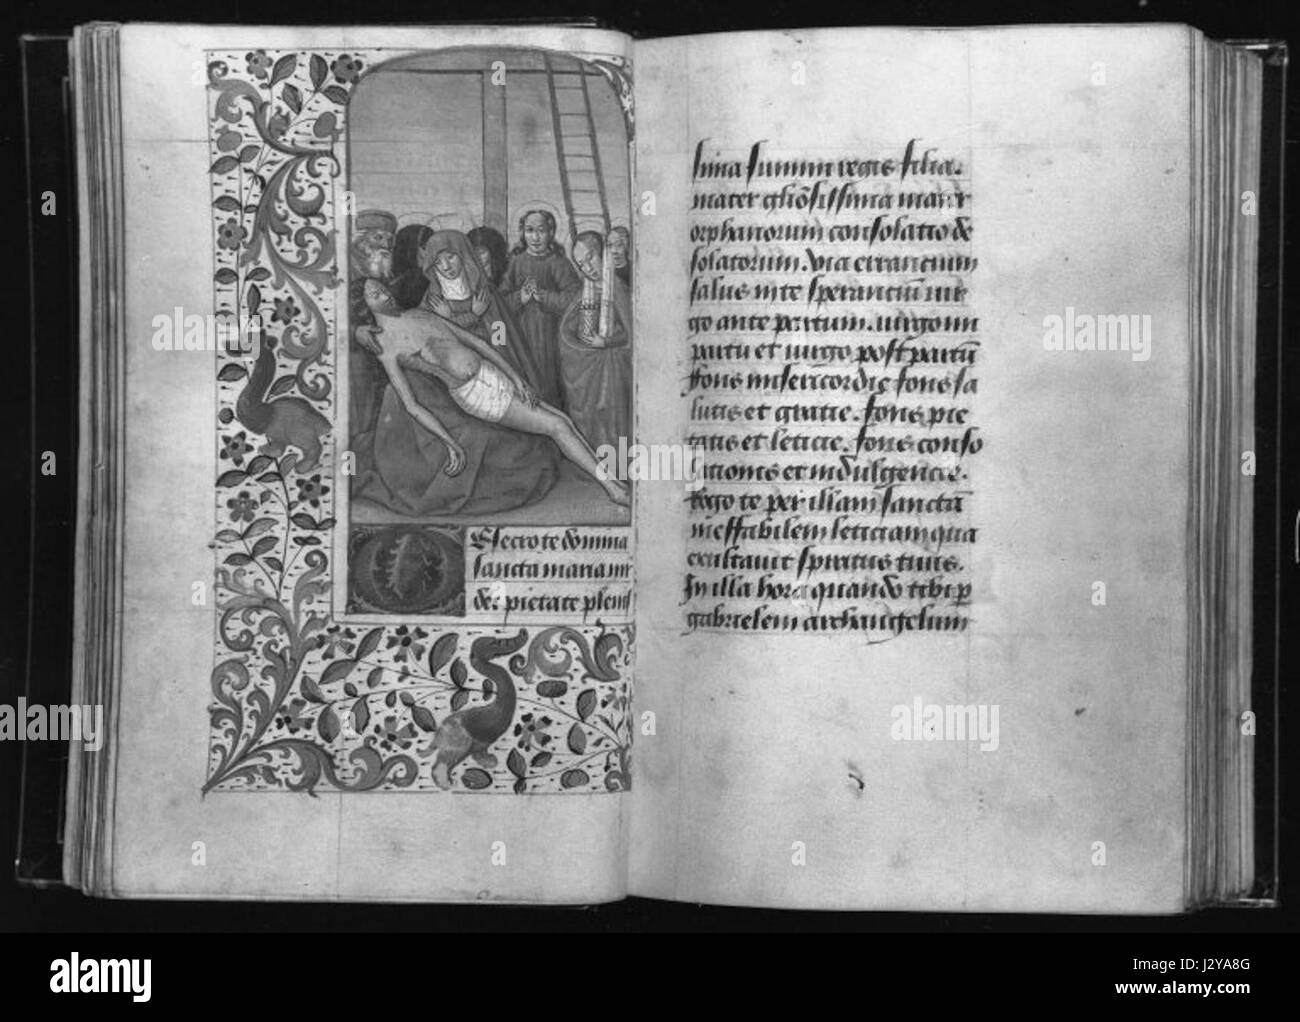 Obsecro te domina
sancta maria ma
der pietate pleniſ
sima summi regis filia.
mater gliosissima mater
orphanorum consolatio de
solatorum. via errancium
salus in te sperancium uir
go ante partum. uirgo in
partu et uirgo post partū
ffons misericordie fons sa
lutis et gratie. fons pie
tatis et leticie. fons conso
lationis et indulgencie.
Rogo te per illam sanctā
ineffabilem leticiam qua
exultauit spiritus tuus.
In illa hora quando tibi p
gabrielem archangelum
alamy
Image ID: J2YA8G
www.alamy.com